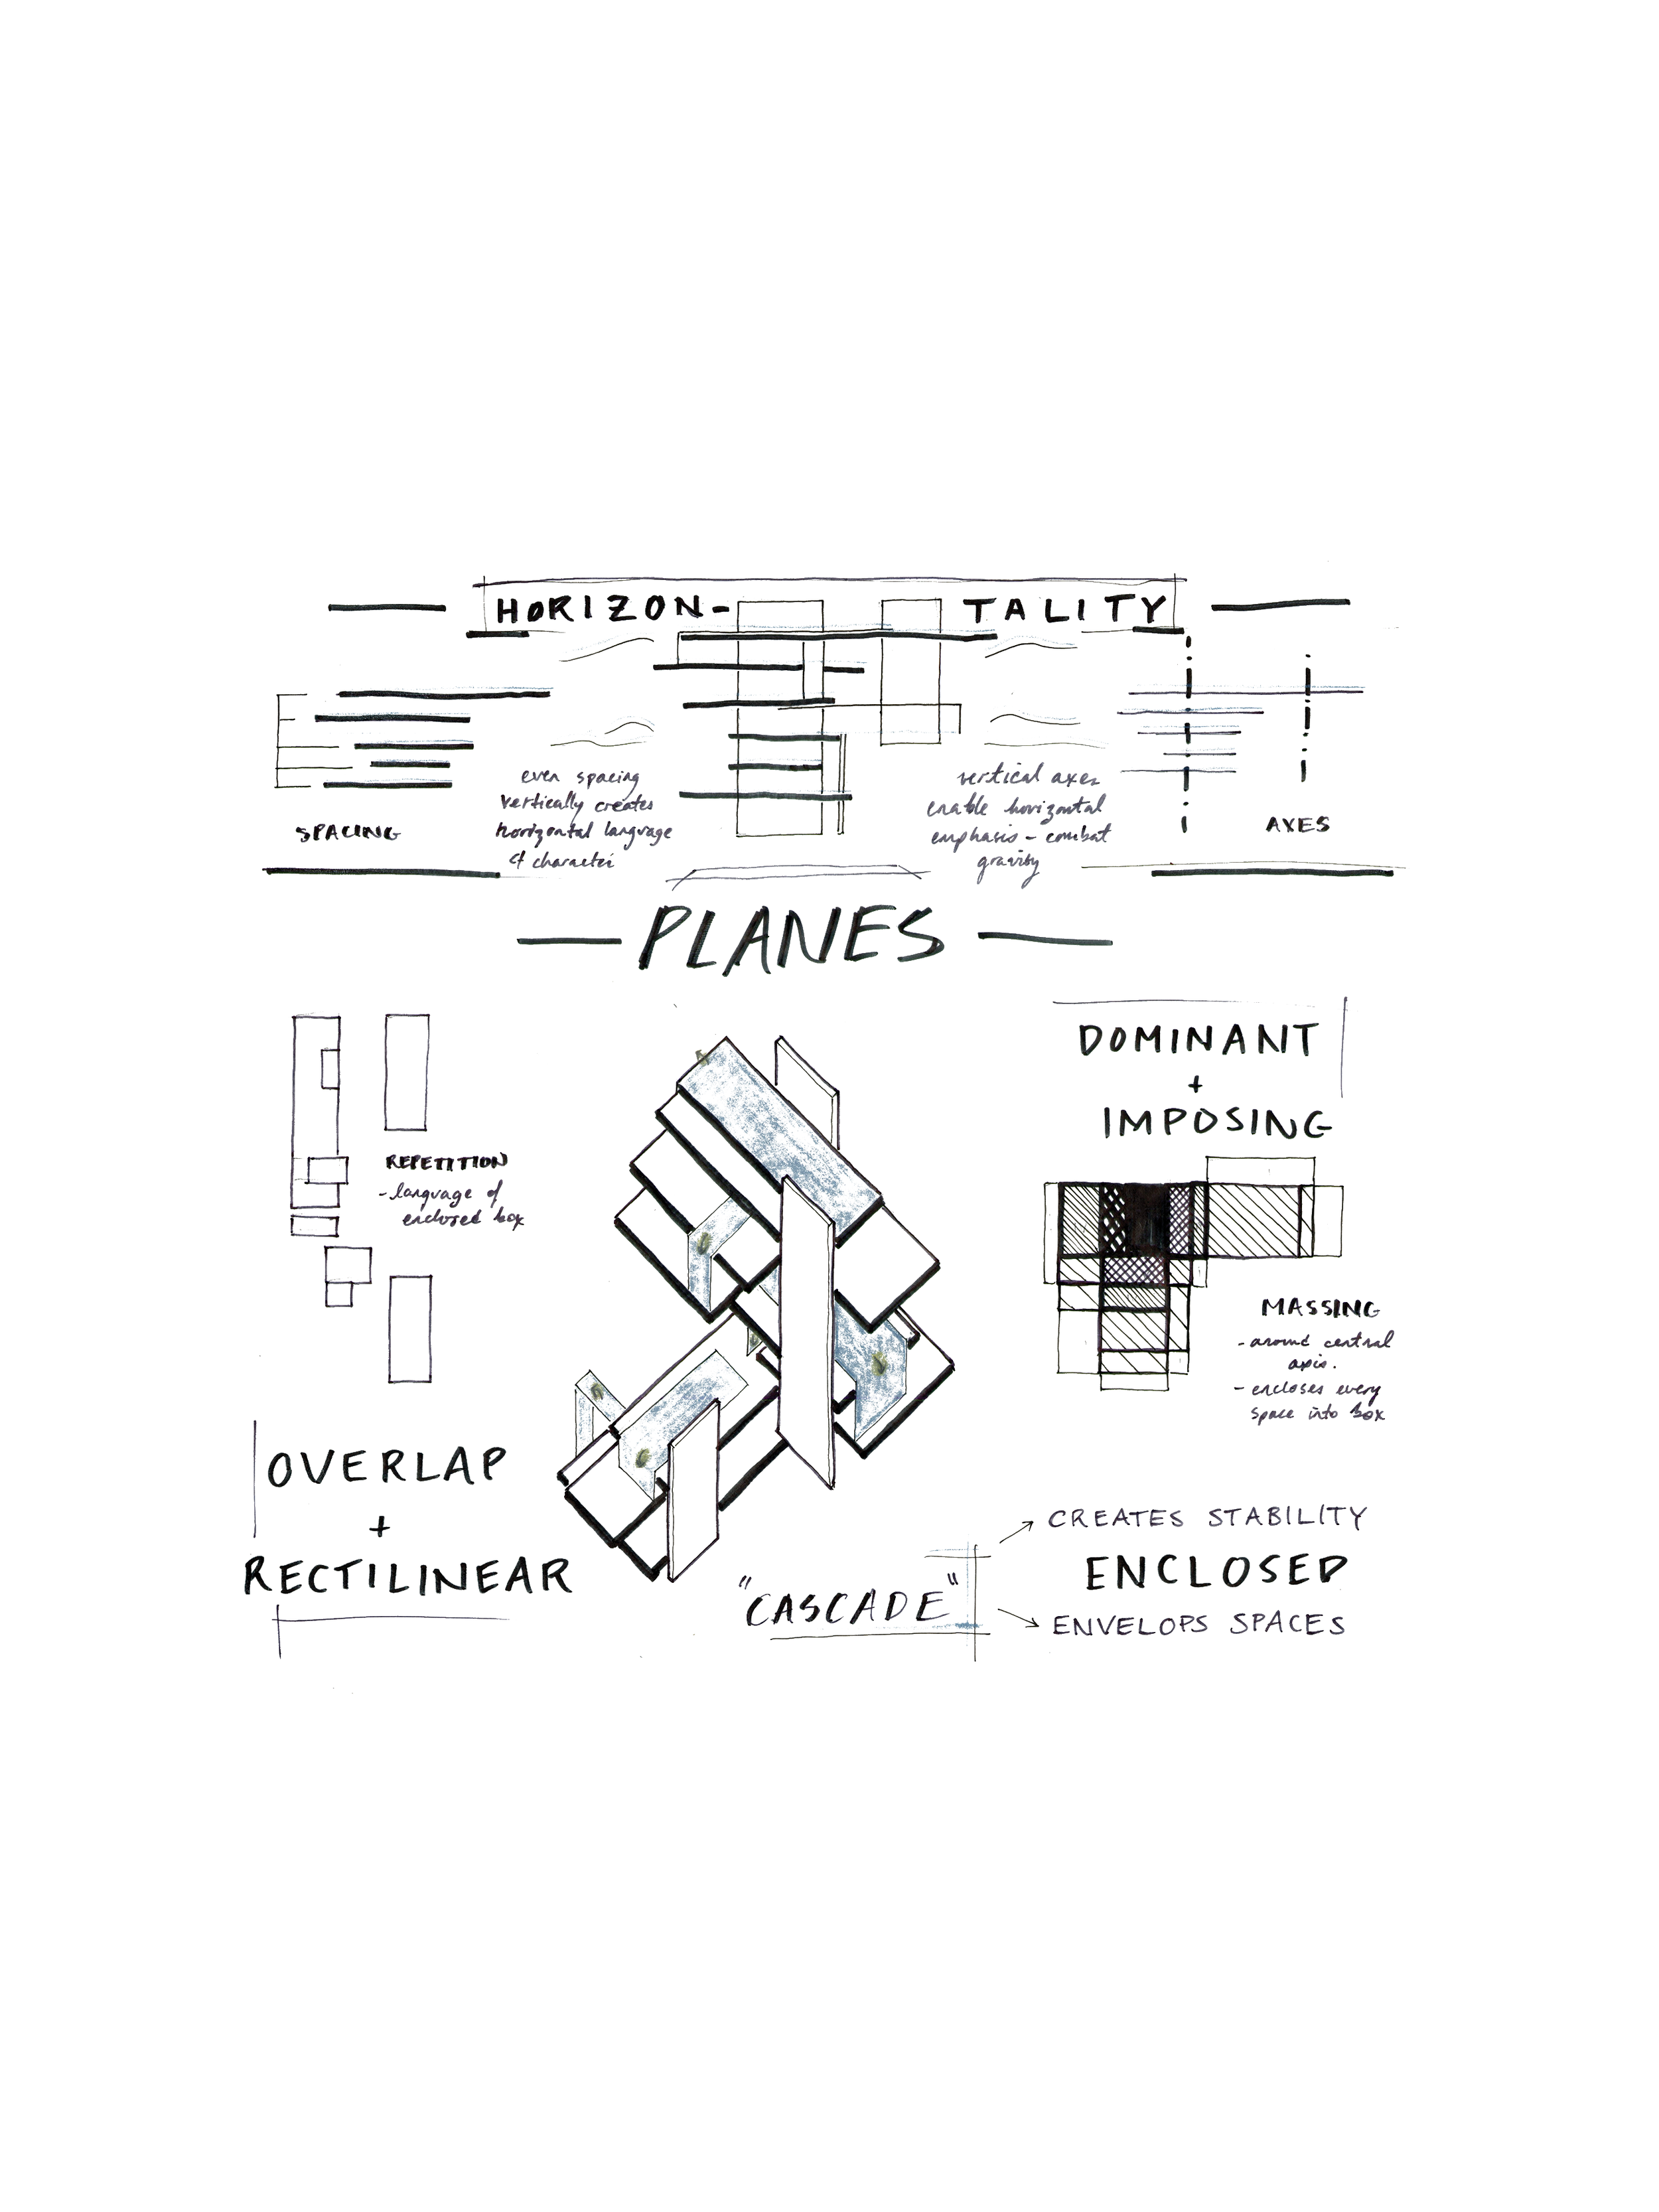 HORIZON-
TALITY
SPACING
even spacing
vertically creates
horizontal language
& character
vertical axes
enable horizontal
emphasis - combat
gravity
AXES
PLANES
REPETITION
-language of
enclosed box
OVERLAP
+
RECTILINEAR
DOMINANT
+
IMPOSING
MASSING
-around central
axis.
- encloses every
space into box
"CASCADE"
CREATES STABILITY
ENCLOSED
ENVELOPS SPACES